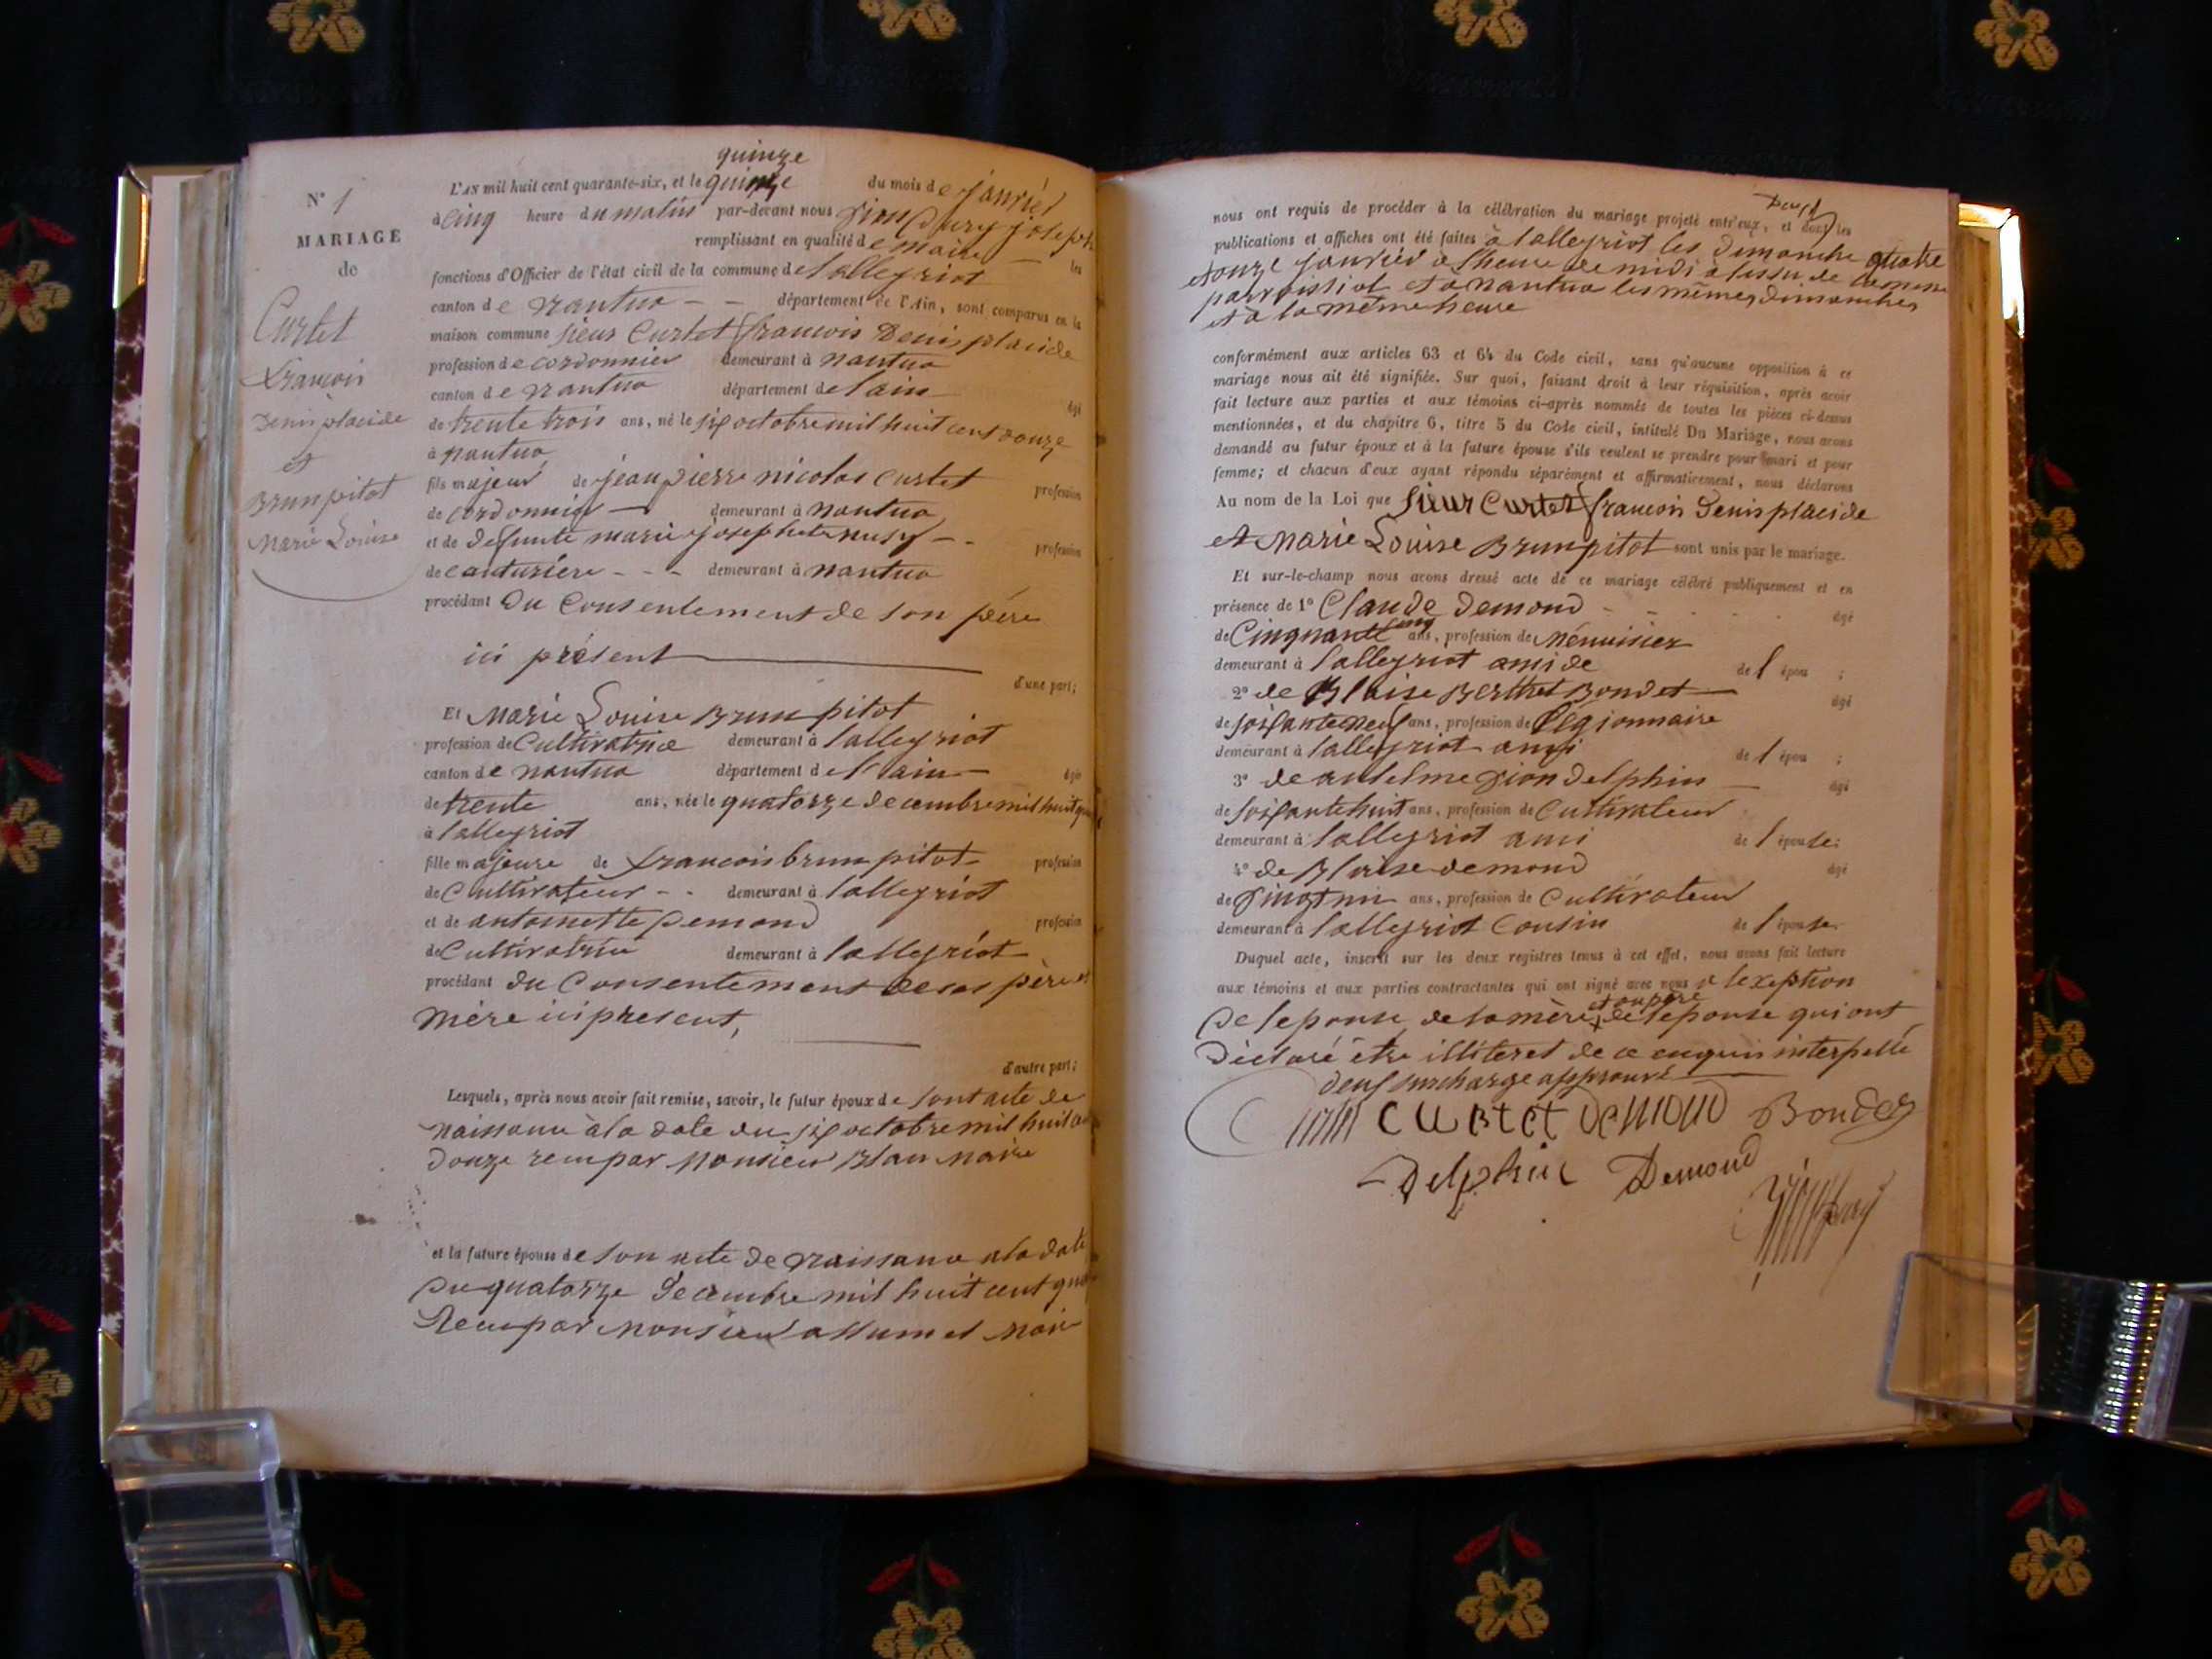 N° 1
MARIAGE
de
Curlet
francois
Denis placide
et
Brunpitot
Marie Louise
quinze
L'AN mil huit cent quarante-six, et le quinze du mois de janvier
à cinq heure du matin par-devant nous joseph
remplissant en qualité de maire les
fonctions d'Officier de l'état civil de la commune de lalleyriat
canton de nantua - - département de l'Ain, sont comparus en la
maison commune sieur Curtet francois Denis placide
profession de cordonnier demeurant à nantua
canton de nantua département de lain âgé
de trente trois ans, né le six octobre mil huit cent douze
à nantua
fils majeur de jean pierre nicolas Curtet profession
de cordonnier demeurant à nantua
et de defunte marie josephete - - profession
de couturiére - - - demeurant à nantua
procédant du Consentement de son pére
ici présent
d'une part;
Et Marie Louise Brun pitot
profession de Cultivatrice demeurant à lalleyriat
canton de nantua département de l'ain âgée
de trente ans, née le quatorze decembre mil huit
à lalleyriat
fille majeure de francois brun pitot profession
de Cultivateur - - demeurant à lalleyriat
et de antoinette Demond profession
de Cultivatrice demeurant à lalleyriat
procédant du Consentement de ses père et
mère ici present,
d'autre part;
Lesquels, après nous avoir fait remise, savoir, le futur époux de sont acte de
naissance à la date du six octobre mil huit
douze recu par Monsieur Blanc Maire
et la future épouse de son acte de naissance a la date
du quatorze decembre mil huit cent
Recu par Monsieur Maire
nous ont requis de procéder à la célébration du mariage projeté entr'eux, et dont les
publications et affiches ont été faites à lalleyriat les dimanche quatre
et onze janvier a lheure de midi à lissu de la messe
parroissial et à nantua les mêmes dimanches
et a la même heure
conformément aux articles 63 et 64 du Code civil, sans qu'aucune opposition à ce
mariage nous ait été signifiée. Sur quoi, faisant droit à leur réquisition, après avoir
fait lecture aux parties et aux témoins ci-après nommés de toutes les pièces ci-dessus
mentionnées, et du chapitre 6, titre 5 du Code civil, intitulé Du Mariage, nous avons
demandé au futur époux et à la future épouse s'ils veulent se prendre pour mari et pour
femme; et chacun d'eux ayant répondu séparément et affirmativement, nous déclarons
Au nom de la Loi que sieur Curtet francois Denis placide
et Marie Louise Brunpitot sont unis par le mariage.
Et sur-le-champ nous avons dressé acte de ce mariage célébré publiquement et en
présence de 1° Claude Demond âgé
de Cinquante cinq ans, profession de Ménuisier
demeurant à lalleyriat ami de de l épou ;
2° de Blaise Berthet Bondet âgé
de soixante neuf ans, profession de Légionnaire
demeurant à lalleyriat ami de l épou ;
3° de antelme delphin âgé
de soixante huit ans, profession de Cultivateur
demeurant à lalleyriat ami de l épouse;
4° de Blaise demond âgé
de ans, profession de Cultivateur
demeurant à lalleyriat Cousin de l épouse
Duquel acte, inscrit sur les deux registres tenus à cet effet, nous avons fait lecture
aux témoins et aux parties contractantes qui ont signé avec nous a lexeption
et du père
De lepouse de la mère de lepouse qui ont
Déclaré être illiteret de ce enquis interpellé
deux surcharge approuvé
Curtet Curtet Demond Bondet
Delphin Demond